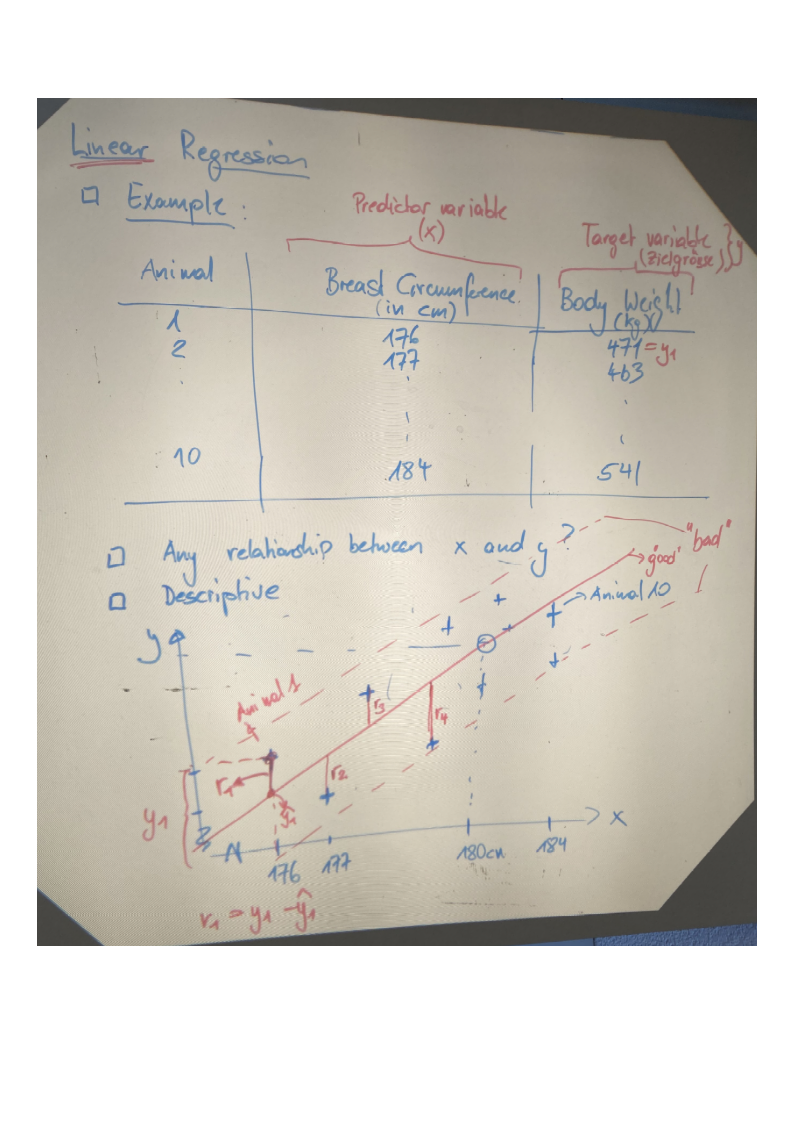 Linear Regression
Example:
Predictor variable
(x)
Target variable
(Zielgrösse) } y
Animal
Breast Circumference
(in cm)
Body Weight
(kg)
1 176 471 = y1
2 177 463
10 184 541
Any relationship between x and y?
Descriptive
"bad"
"good"
Animal 10
y
Animal 1
r3
r4
r1
r2
ŷ1
y1
x
176
177
180cm
184
r1 = y1 - ŷ1